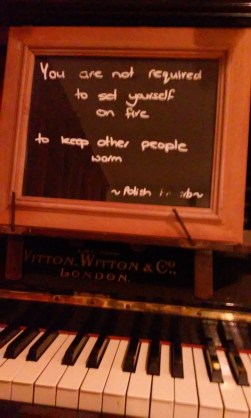 You are not required
to set yourself
on fire
to keep other people
warm
~ Polish
WITTON, WITTON & Co.
LONDON.